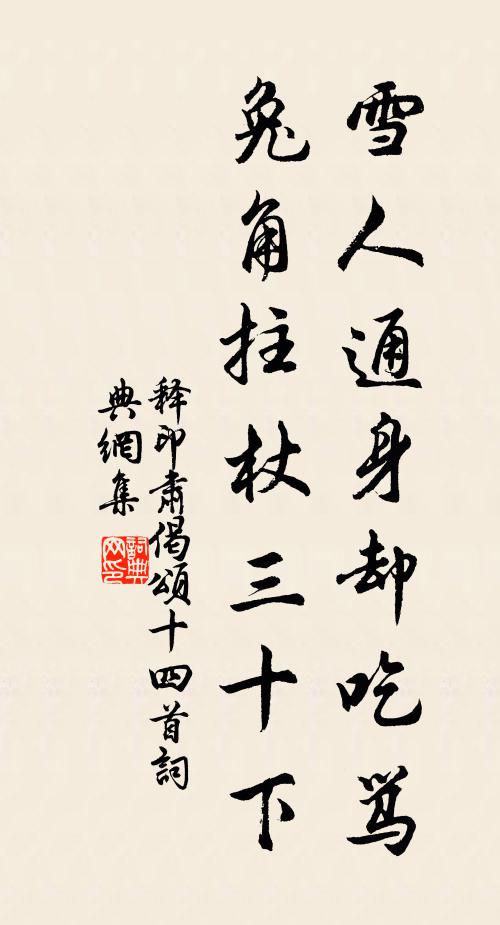 雪人通身却吃骂
兔角拄杖三十下
释印肃偈頌十四首詞
典網集
詞典網印